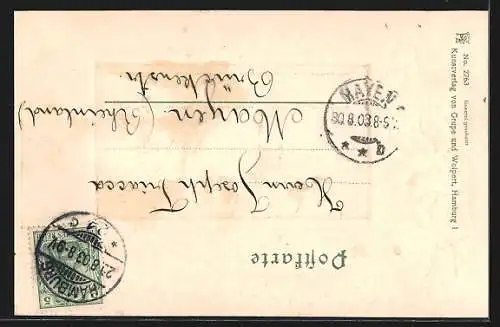 Postkarte
Herrn Joseph Triacca
Mayen (Rheinland)
Brückenstr.
HAMBURG
29.8.03.8-9V.
* 2 g C *
5
MAYEN
30.8.03.8-9V.
* * b
No. 2763
Kunstverlag von Grupe und Wolpert, Hamburg 1